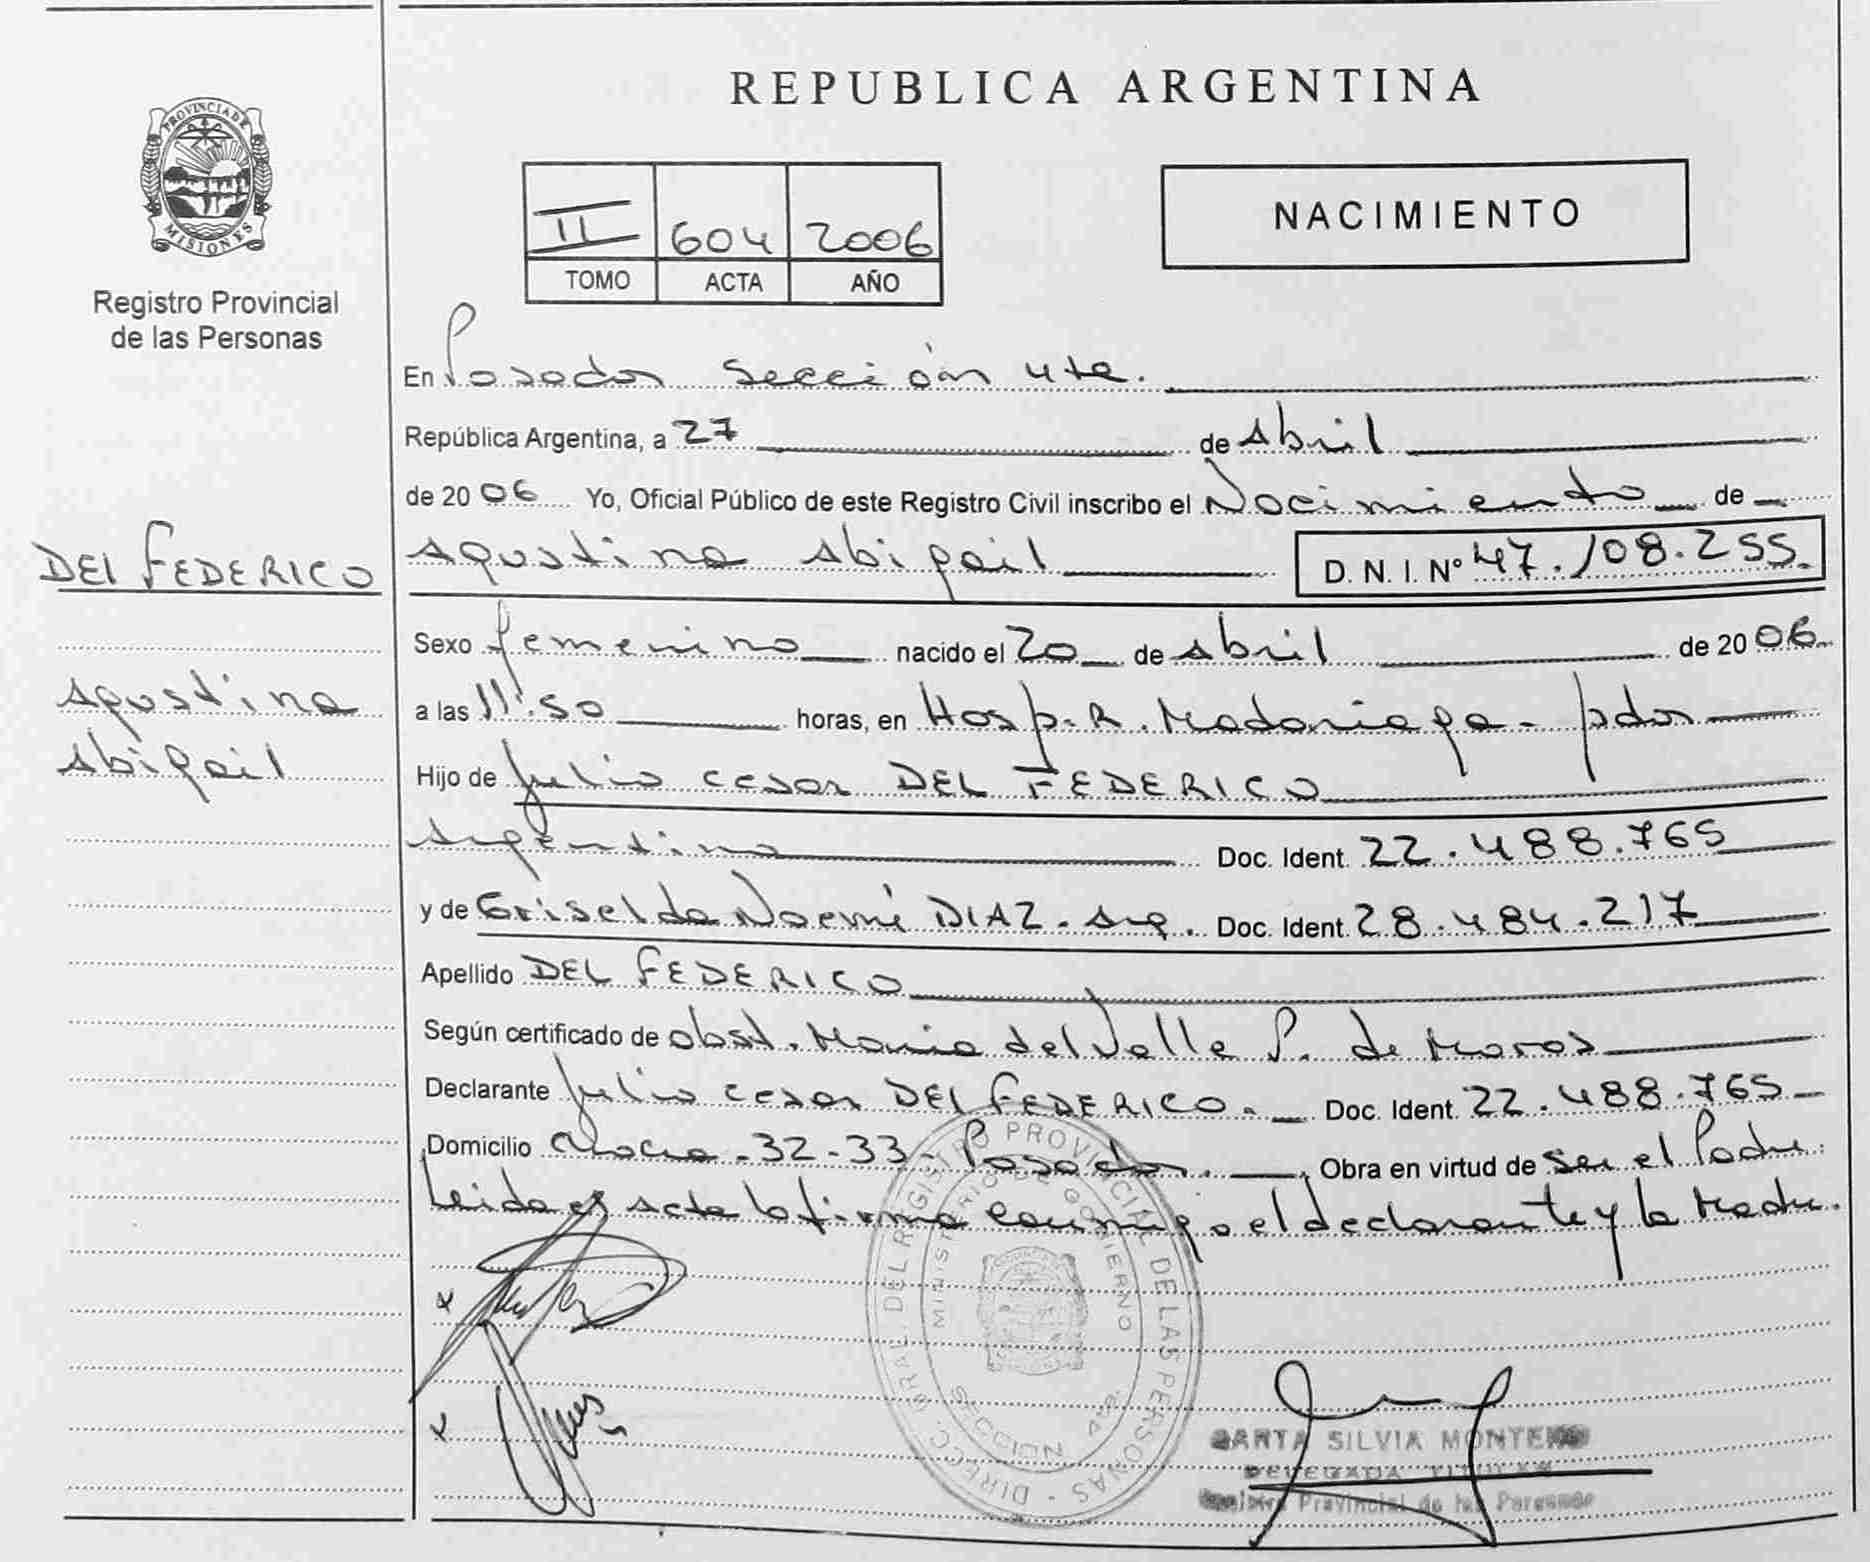 PROVINCIA DE
MISIONES
Registro Provincial
de las Personas
DEL FEDERICO
Agustina
Abigail
REPUBLICA ARGENTINA
II 604 2006
TOMO ACTA AÑO
NACIMIENTO
En Posadas Sección 4ta.
República Argentina, a 27 de Abril
de 2006 Yo, Oficial Público de este Registro Civil inscribo el Nacimiento de
Agustina Abigail D. N. I. Nº 47.108.255.
Sexo femenino nacido el 20 de Abril de 2006
a las 11:50 horas, en Hosp. R. Madariaga - pdas
Hijo de Julio Cesar DEL FEDERICO
Argentino Doc. Ident. 22.488.765
y de Griselda Noemí DIAZ - Arg. Doc. Ident. 28.484.217
Apellido DEL FEDERICO
Según certificado de obst. Maria del Valle P. de
Declarante Julio Cesar DEL FEDERICO. Doc. Ident. 22.488.765
Domicilio 32-33 - Posadas. Obra en virtud de ser el Padre.
Leida el acta la firma conmigo el declarante y la Madre.
DIRECC. GRAL. DEL REGISTRO PROVINCIAL DE LAS PERSONAS
MINISTERIO DE GOBIERNO
SECCION 4ta.
SILVIA MONTERO
DELEGADA TITULAR
Registro Provincial de las Personas